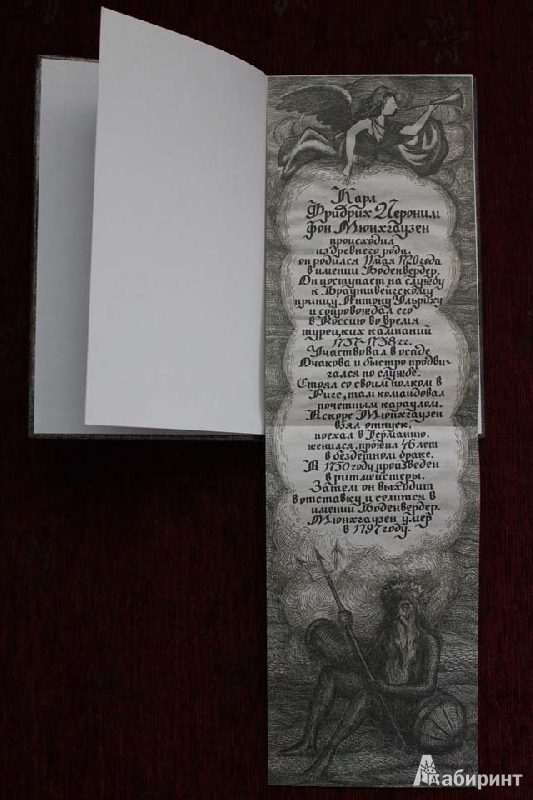 Карл
Фридрих Иероним
фон Мюнхгаузен
происходил
из древнего рода,
он родился 11 мая 1720 года
в имении Боденвердер.
Он поступает на службу
к Брауншвейгскому
принцу Антону Ульриху
и сопровождал его
в Россию во время
турецких кампаний
1737-1738 гг.
Участвовал в осаде
Очакова и быстро продви-
гался по службе.
Стоял со своим полком в
Риге, там командовал
почетным караулом.
Вскоре Мюнхгаузен
взял отпуск,
поехал в Германию.
женился, прожил 46 лет
в бездетном браке.
В 1750 году произведен
в ритмейстеры.
Затем он выходит
в отставку и селится в
имении Боденвердер.
Мюнхгаузен умер
в 1797 году.
Лабиринт